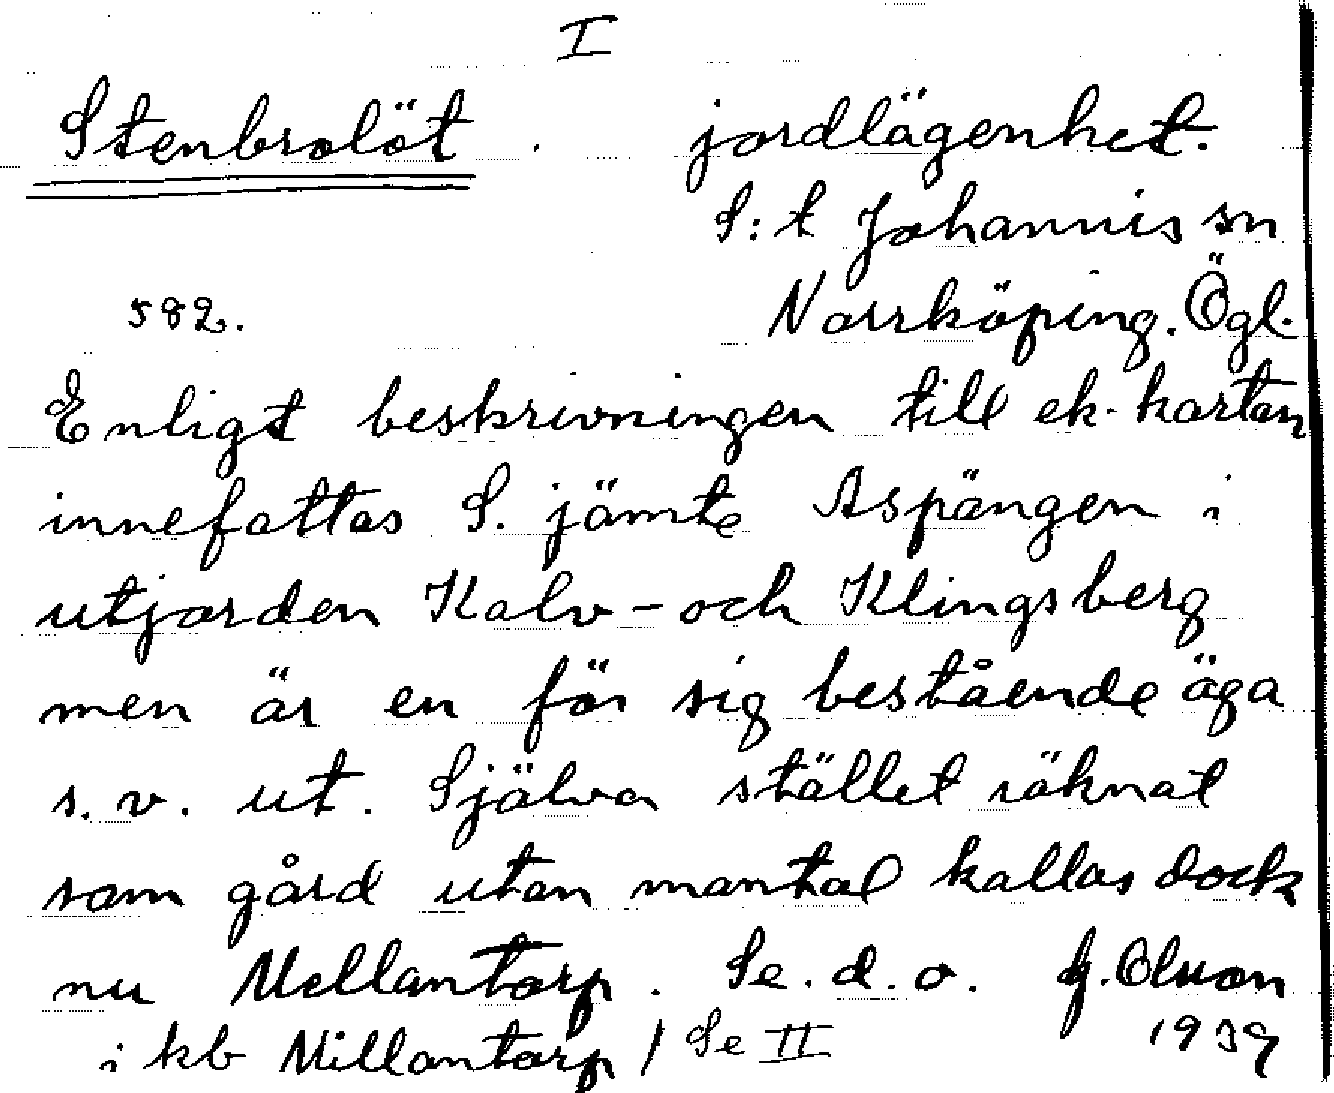 I
Stenbrolöt. jordlägenhet.
S:t Johannis sn
582. Norrköping. Ögl.
Enligt beskrivningen till ek. kartan
innefattas S. jämte Aspängen i
utjorden Kalv- och Klingsberg
men är en för sig bestående äga
s.v. ut. Själva stället räknat
som gård utan mantal kallas dock
nu Mellantorp. Se. d. o. G. Olsson
i kb Millantorp / Se II 1939